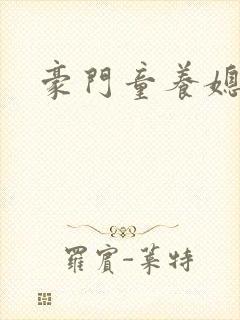 豪門童養媳
羅賓-萊特